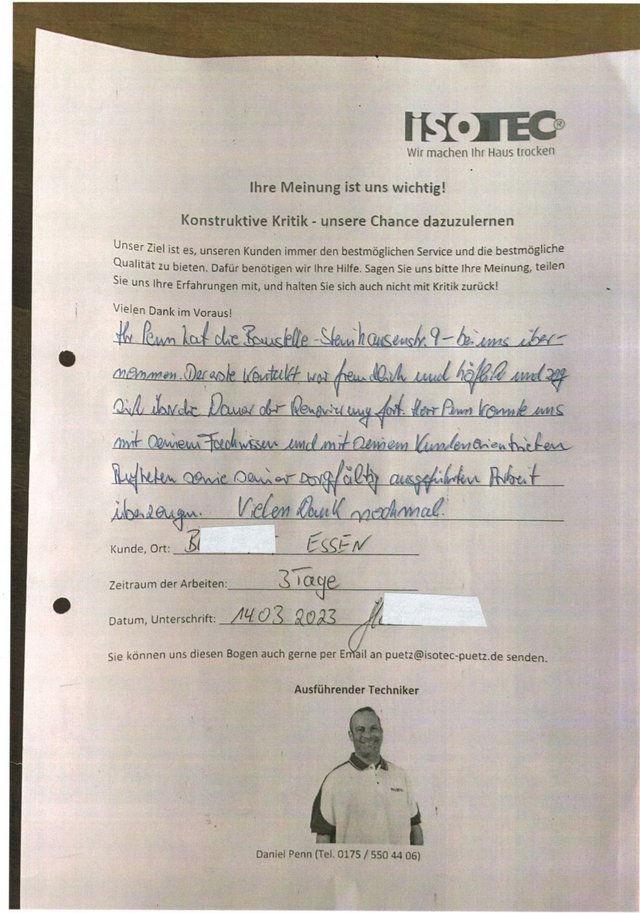 ISOTEC®
Wir machen Ihr Haus trocken
Ihre Meinung ist uns wichtig!
Konstruktive Kritik - unsere Chance dazuzulernen
Unser Ziel ist es, unseren Kunden immer den bestmöglichen Service und die bestmögliche
Qualität zu bieten. Dafür benötigen wir Ihre Hilfe. Sagen Sie uns bitte Ihre Meinung, teilen
Sie uns Ihre Erfahrungen mit, und halten Sie sich auch nicht mit Kritik zurück!
Vielen Dank im Voraus!
Hr Penn hat die Baustelle - Steinhausenstr. 9 - bei uns über-
nommen. Der erste Kontakt war freundlich und höflich und zog
sich über die Dauer der Renovierung fort. Herr Penn konnte uns
mit seinem Fachwissen und mit seinem Kundenorientierten
Auftreten sowie seiner sorgfältig ausgeführten Arbeit
überzeugen. Vielen Dank nochmal.
Kunde, Ort: B ESSEN
Zeitraum der Arbeiten: 3 Tage
Datum, Unterschrift: 14.03 2023
Sie können uns diesen Bogen auch gerne per Email an puetz@isotec-puetz.de senden.
Ausführender Techniker
Daniel Penn (Tel. 0175 / 550 44 06)